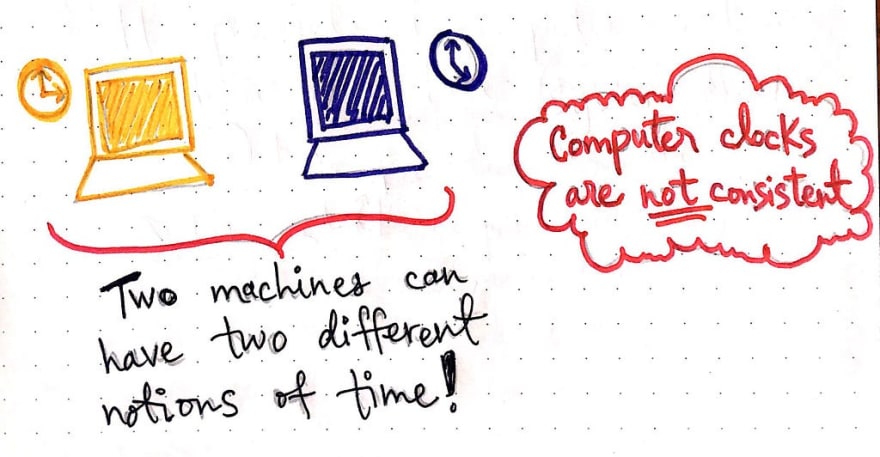 Computer clocks
are not consistent
Two machines can
have two different
notions of time!